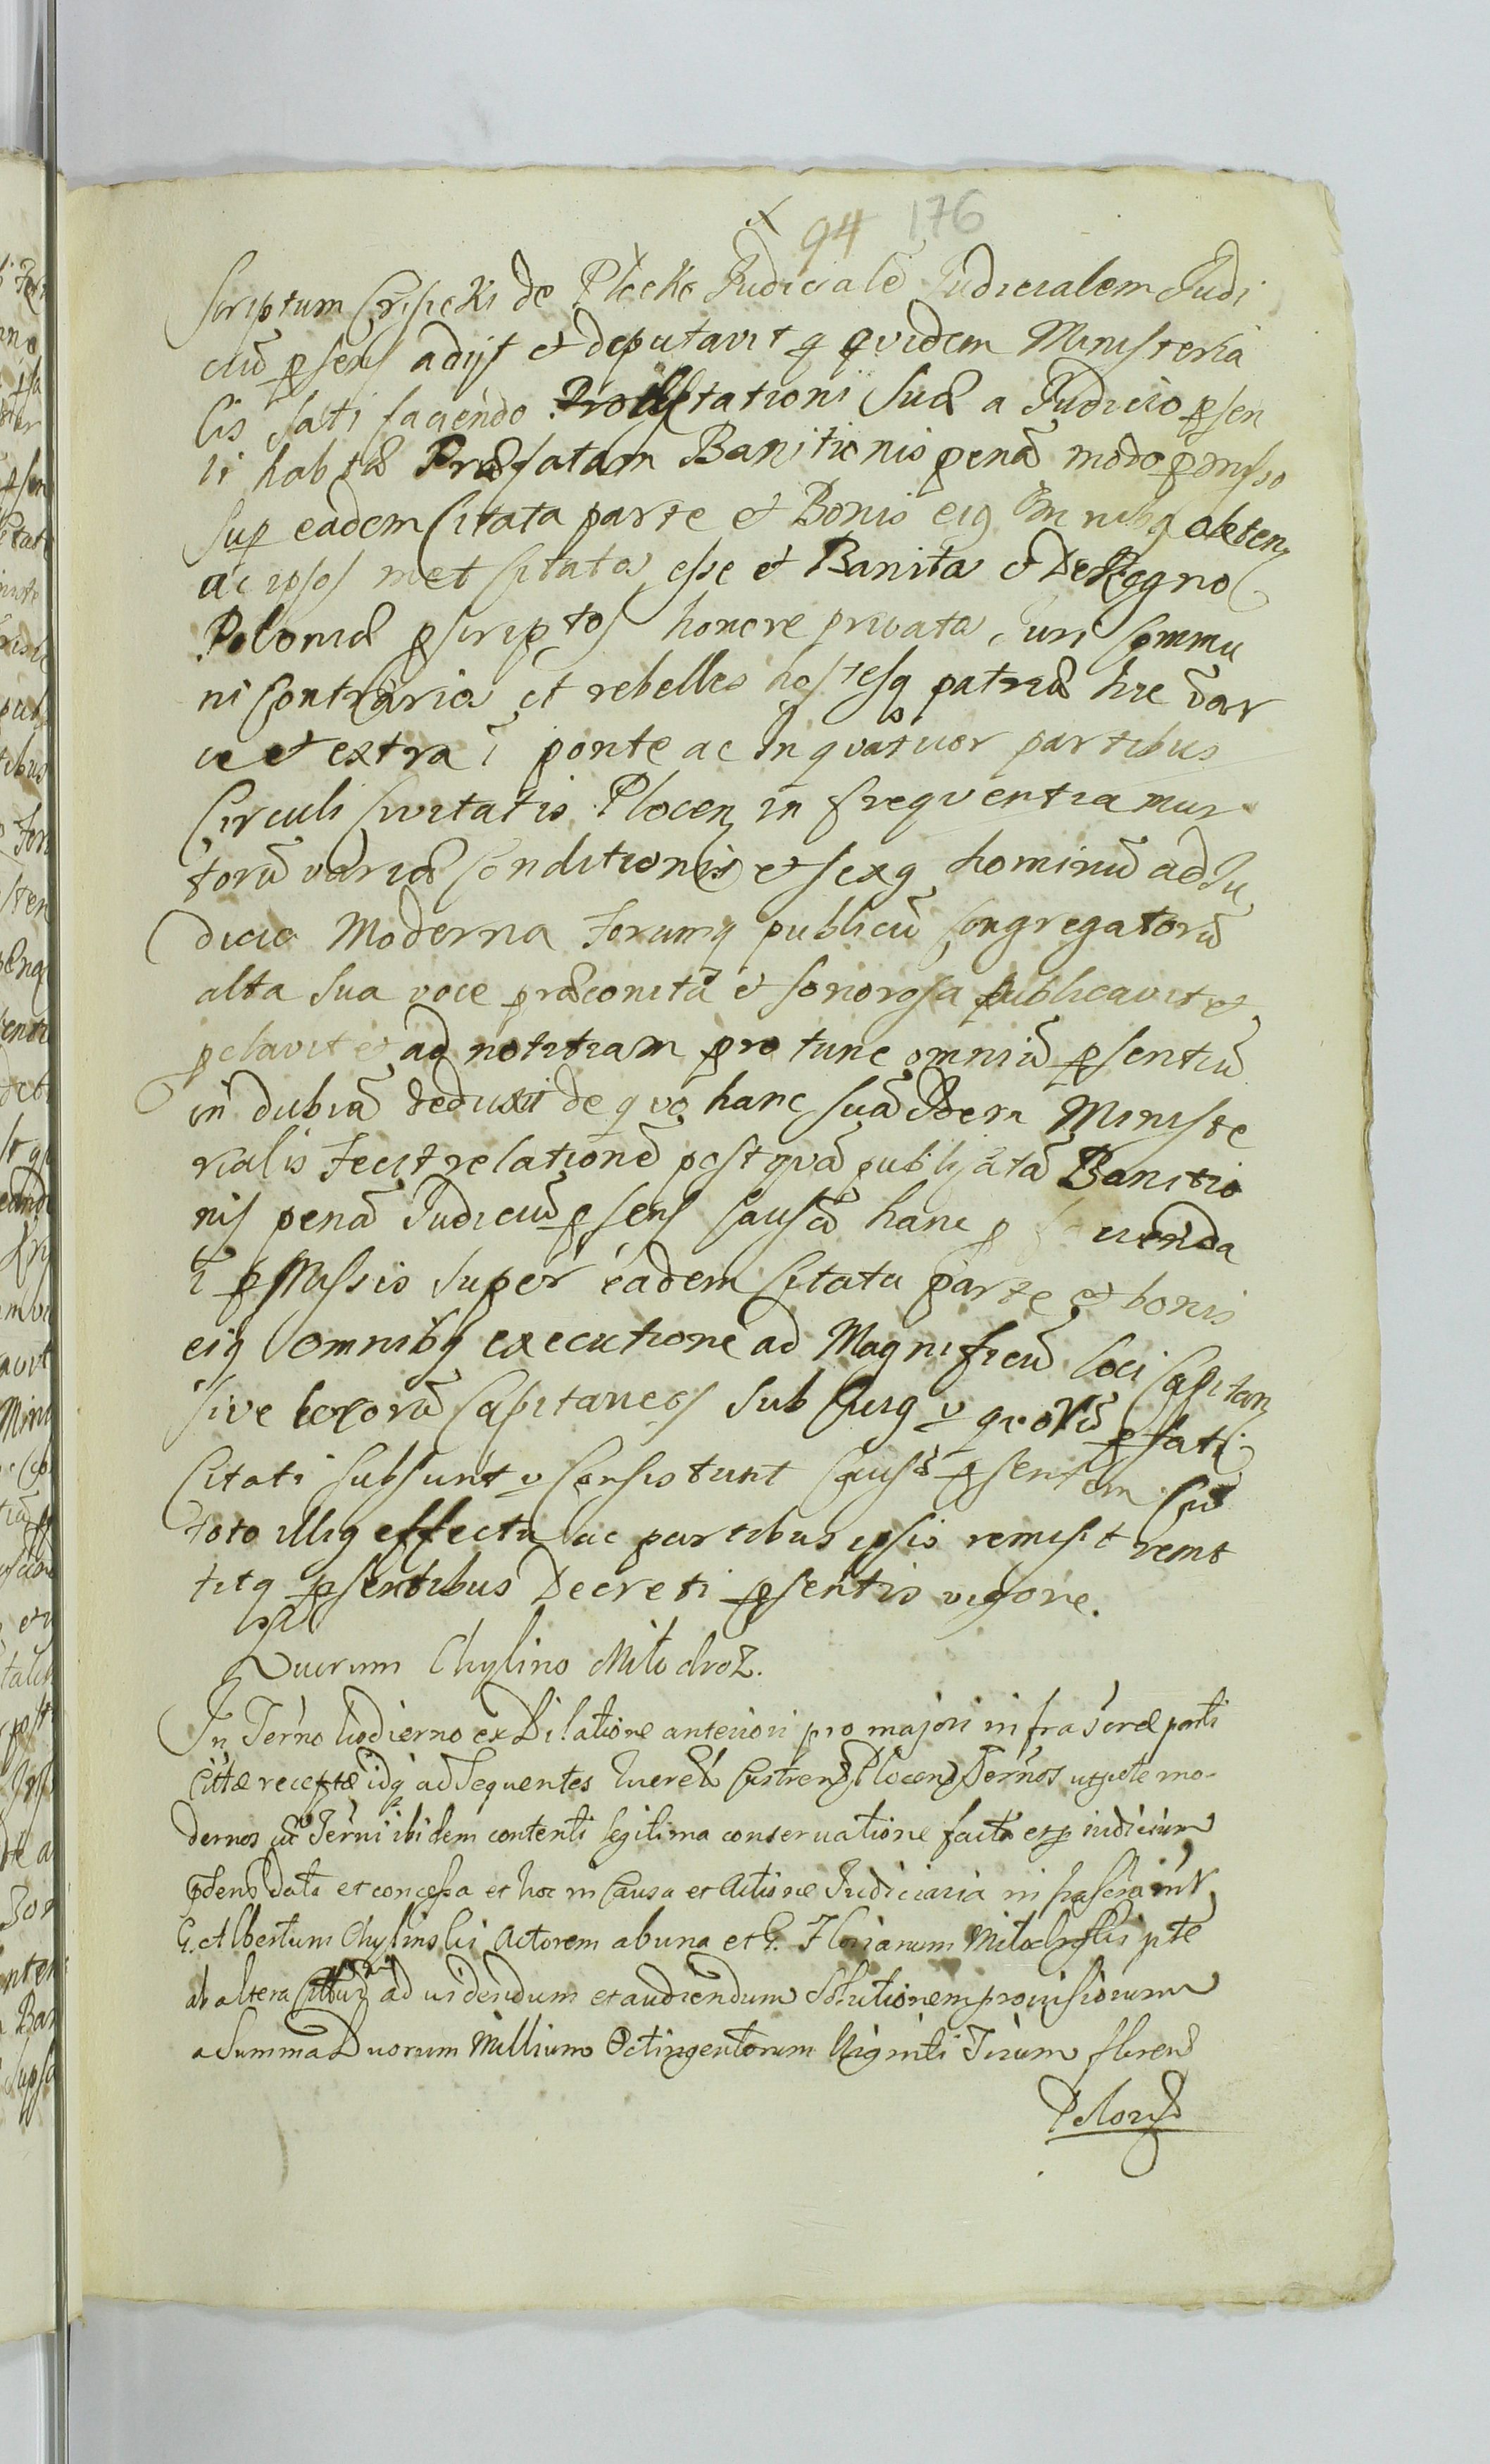 94 176
Scriptum Crisicki de Plocko Judicialẽ Judicialem Judi
ciũ pseñs adijt et deputavit q qvidem Ministeria
lis satisfaciendo Protestationi Suæ a Judicio psen
ti habitæ Præfatam Banitionis penã modo pmisso
Sup eadem Citata parte et Bonis eig Omnibq obten
ac ipsos met Citatos esse et Banitos et De Regno
Poloniæ pscriptos honore privatos Juri Commu
ni Contrarios et rebelles hostesq patriæ hic in ar
ce et extra ĩ ponte ac in qvatuor partibus
Circuli Civitatis Plocen in freqventia mul
torũ variæ Conditionis et sexq hominũ ad Ju
dicia Moderna Forumq publicũ Congregatorũ
alta sua voce præconitã et sonorosa publicavit et
pclavit et ad notitiam pro tunc omniũ psentiũ
in dubiã deduxit de qvo hanc suã Idem Ministe
rialis Fecit relationẽ post qvã publicatã Banitio
nis penã Judiciũ pseñs Causã hanc p
ĩ pMissis super eadem Citata parte et bonis
eiq omnibq executione ad Magnificũ loci Capitan
sive locorũ Capitaneos sub Cuig v qvorũ pfati
Citati subsunt v Consistunt Causã psentem Cũ
toto illig effectu ac partibus ipsis remisit remit
titq psentibus Decreti psentis vigore.
Duerum Chylino Miłodroż.
In Terño hodierno ex Dilatione anteriori pro majori infrascræ parti
Cittæ receptæ idq ad Sequentes Querel Castren Plocen Terños utpote mo-
dernos cũ Terñi ibidem contenti legitima conservatione facta et p iudicium
pseñs data et concessa et hoc in Causa et Actione Judiciaria infrascra int
G. Albertum Chylinski Actorem ab una et G. Florianum Miłodroski pte
ab altera Cittum ad videndum et audiendum Solutionem provisiorum
a Summa Duorum Millium Octingentorum Viginti Trium floren
Polon